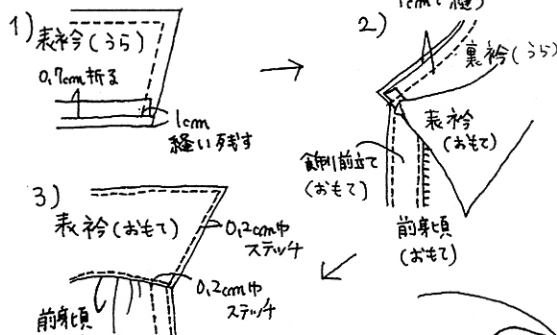 1)
表衿(うら)
0.7cm折る
1cm
縫い残す
2)
裏衿(うら)
表衿
(おもて)
飾り前立て
(おもて)
前身頃
(おもて)
3)
表衿(おもて)
0.2cm巾
ステッチ
0.2cm巾
ステッチ
前身頃